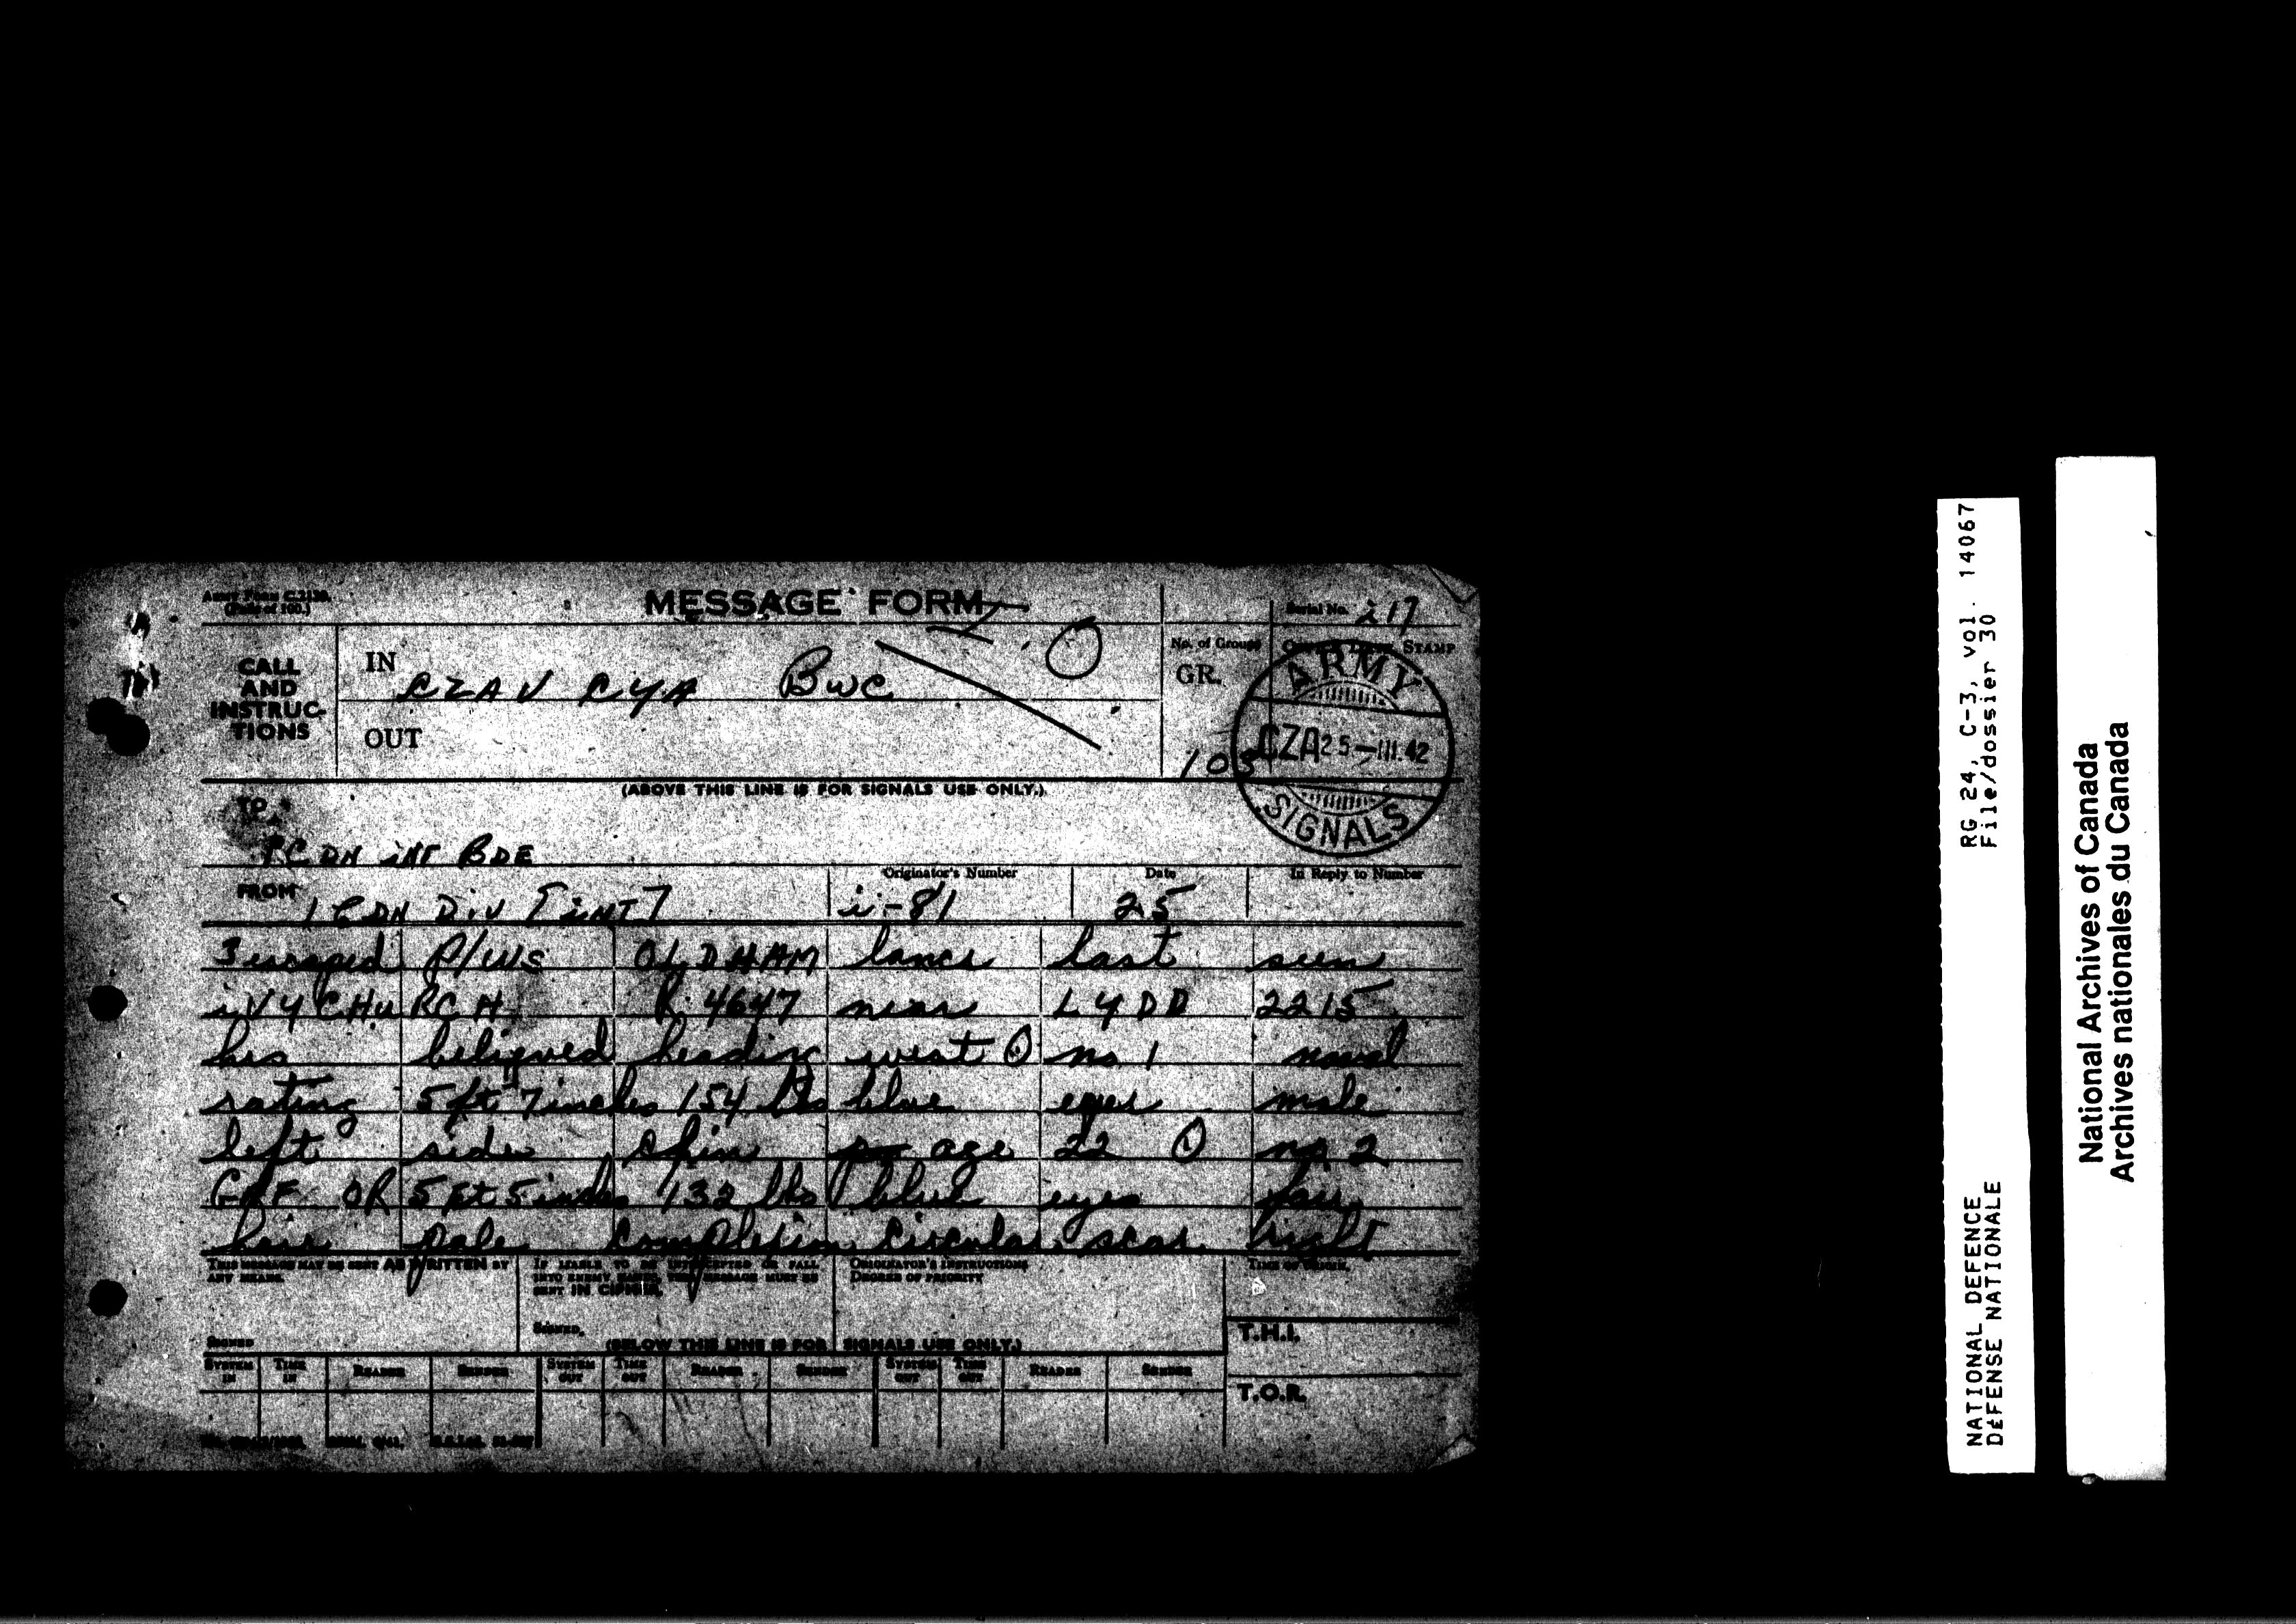 Army Form C.2128.
(Pads of 100.)
MESSAGE FORM
Serial No. 217
CALL
AND
INSTRUC-
TIONS
IN
CZA V CYA BWC
OUT
No. of Groups
GR.
105
STAMP
ARMY
CZA 25-III.42
SIGNALS
(ABOVE THIS LINE IS FOR SIGNALS USE ONLY.)
TO
CDN INF BDE
FROM
1 CDN DIV [INT]
Originator's Number
i-81
Date
25
In Reply to Number
3 escaped P/WS OLDHAM lance last seen
IVYCHURCH R 4647 near LYDD 2215
hrs believed heading west no 1 naval
rating 5 ft 7 inches 154 lbs blue eyes mole
left side chin age 22 no 2
GAF OR 5 ft 5 inches 132 lbs blue eyes fair
hair pale complexion circular scar right
THIS MESSAGE MAY BE SENT AS WRITTEN BY
ANY MEANS.
IF LIABLE TO BE INTERCEPTED OR FALL
INTO ENEMY HANDS, THIS MESSAGE MUST BE
SENT IN CIPHER.
ORIGINATOR'S INSTRUCTIONS
DEGREE OF PRIORITY
SIGNED
SIGNED.
(BELOW THIS LINE IS FOR SIGNALS USE ONLY.)
T.H.I.
SYSTEM IN TIME IN READER SENDER SYSTEM OUT TIME OUT READER SENDER SYSTEM OUT TIME OUT READER SENDER
T.O.R.
RG 24, C-3, vol. 14067
File/dossier 30
NATIONAL DEFENCE
DÉFENSE NATIONALE
National Archives of Canada
Archives nationales du Canada